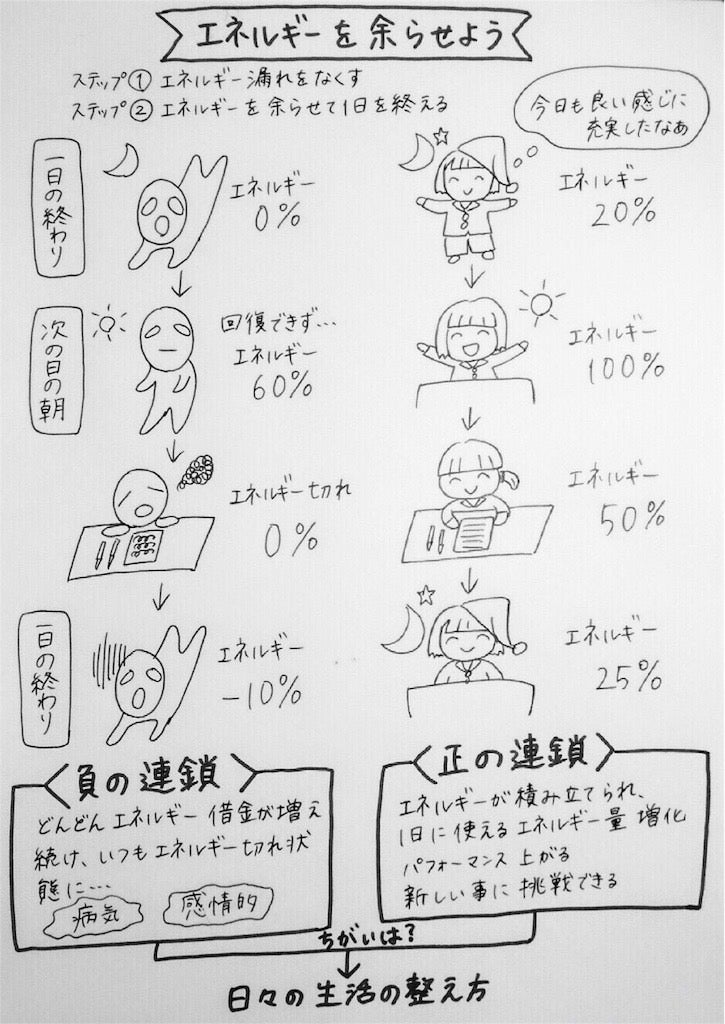 エネルギーを余らせよう
ステップ① エネルギー漏れをなくす
ステップ② エネルギーを余らせて1日を終える
今日も良い感じに
充実したなあ
一日の終わり
エネルギー
0%
エネルギー
20%
次の日の朝
回復できず…
エネルギー
60%
エネルギー
100%
エネルギー切れ
0%
エネルギー
50%
一日の終わり
エネルギー
-10%
エネルギー
25%
負の連鎖
どんどんエネルギー借金が増え
続け、いつもエネルギー切れ状
態に…
病気
感情的
正の連鎖
エネルギーが積み立てられ、
1日に使えるエネルギー量 増化
パフォーマンス上がる
新しい事に挑戦できる
ちがいは?
日々の生活の整え方